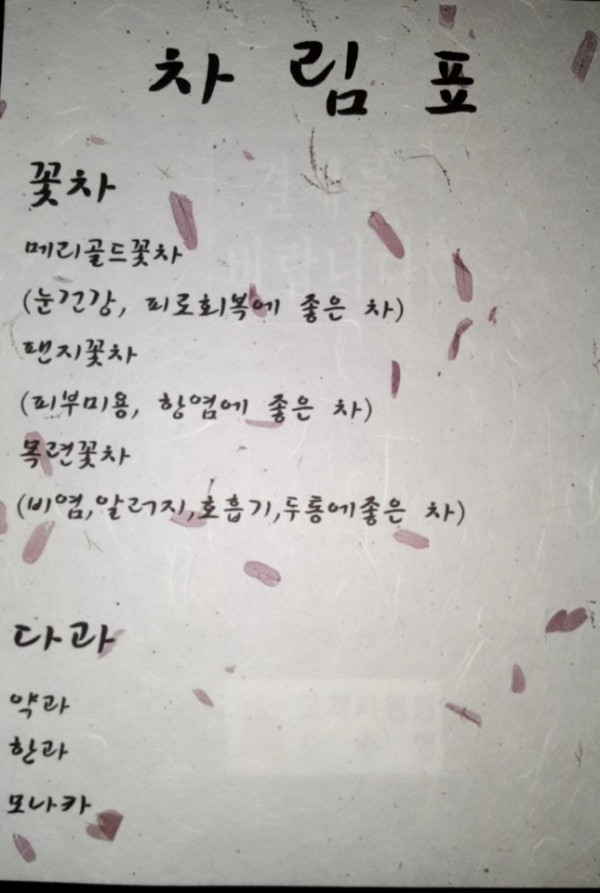 차 림 표
꽃차
메리골드꽃차
(눈건강, 피로회복에 좋은 차)
팬지꽃차
(피부미용, 항염에 좋은 차)
목련꽃차
(비염,알러지,호흡기,두통에좋은 차)
다과
약과
한과
모나카